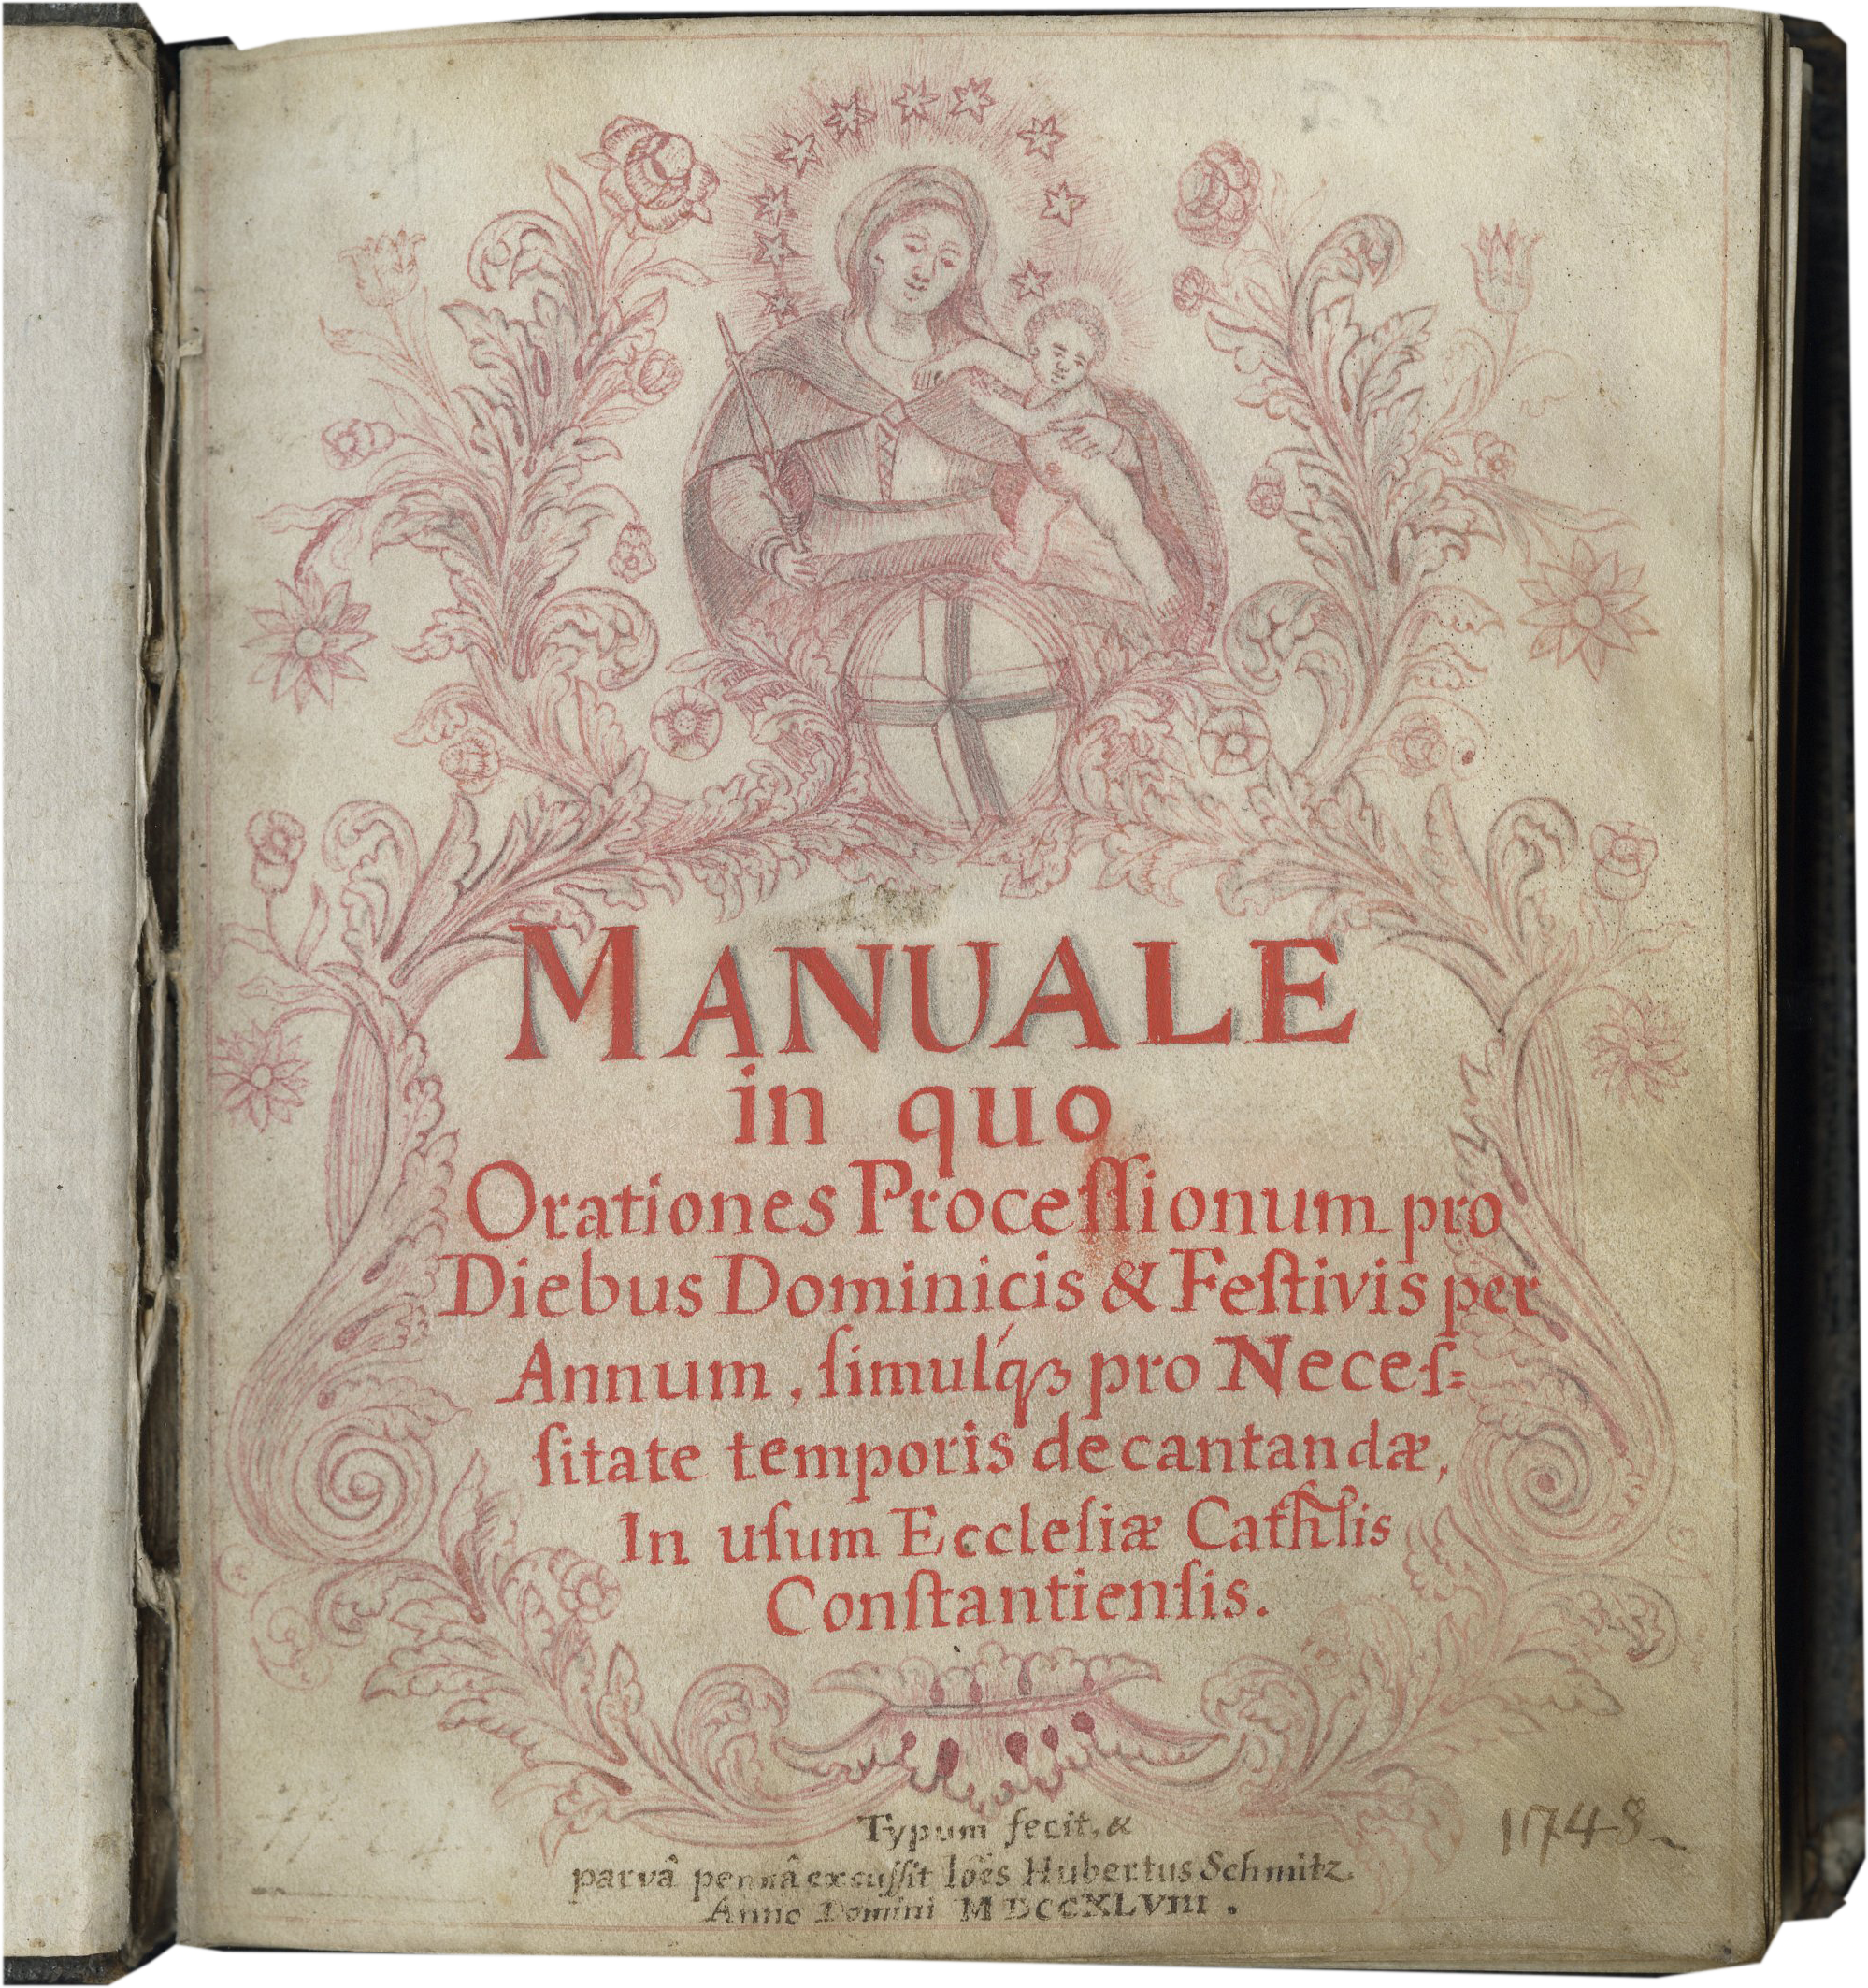 MANUALE
in quo
Orationes Proceſſionum pro
Diebus Dominicis & Feſtivis per
Annum, ſimulq́ꝫ pro Neceſ=
ſitate temporis decantandæ,
In uſum Eccleſiæ Cath̅lis
Conſtantienſis.
Typum fecit, &
parvâ pennâ excuſſit Ioẽs Hubertus Schmitz
Anno Domini MDCCXLVIII.
1748